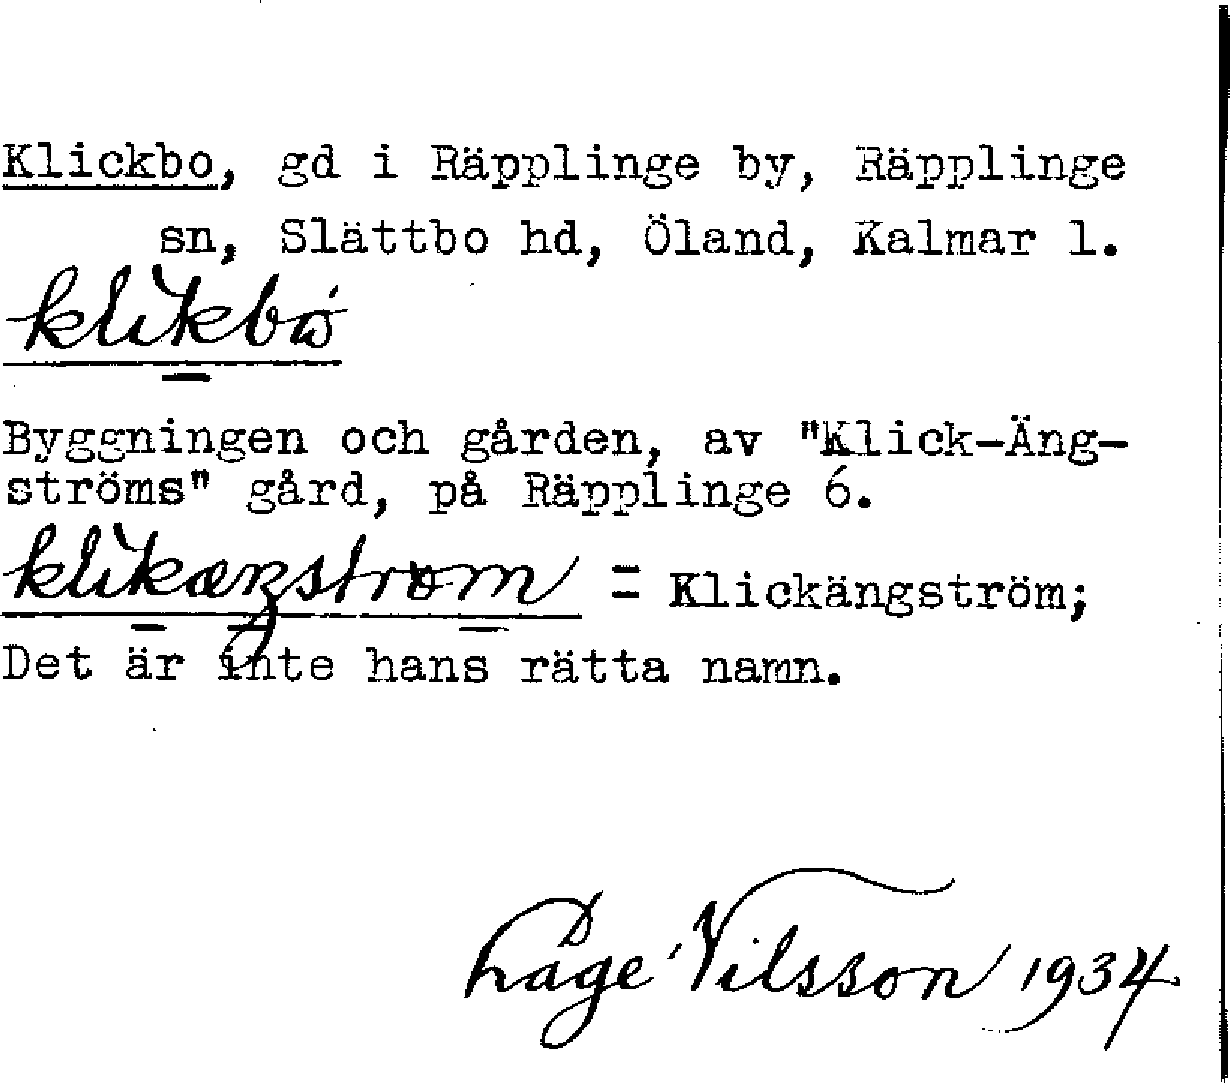 Klickbo, gd i Räpplinge by, Räpplinge
sn, Slättbo hd, Öland, Kalmar l.
klikbo
Byggningen och gården, av "Klick-Äng-
ströms" gård, på Räpplinge 6.
klikæŋstrøm = Klickängström;
Det är inte hans rätta namn.
Låge Nilsson 1934